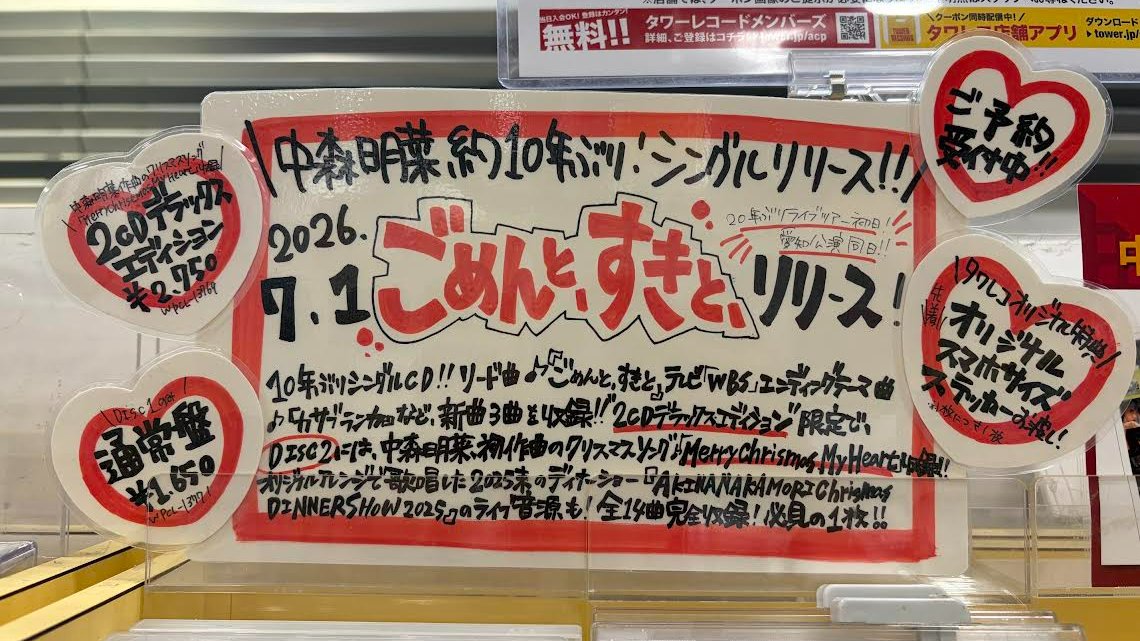 当日入会OK!登録はカンタン!
無料!!
タワーレコードメンバーズ
詳細、ご登録はコチラ tower.jp/acp
\クーポン同時配信中!/
タワレコ店舗アプリ
ダウンロード
▶tower.jp/
TOWER RECORDS
\中森明菜約10年ぶり!シングルリリース!!/
2026.
7.1
ごめんと、すきと、
リリース!
20年ぶりライブツアー初日!
愛知公演同日!!
10年ぶりシングルCD!!リード曲♪『ごめんと、すきと』テレビ「WBS」エンディングテーマ曲
♪「カサブランカ」など、新曲3曲を収録!!2CDデラックスエディション限定で、
DISC2には、中森明菜、初作曲のクリスマスソング「Merry Chrismas My Heart」収録!!
オリジナルアレンジで歌唱した2025末のディナーショー『AKINA NAKAMORI Chrismas
DINNERSHOW 2025』のライブ音源、も!全14曲完全収録!必見の1枚!!
\中森明菜作曲のクリスマスソング
「Merry Chrismas My Heart」収録/
2CDデラックス
エディション
¥2,750
WPCL-13769
\DISC1のみ/
通常盤
¥1,650
ご予約
受付中!!
\タワレコオリジナル特典/
先着
オリジナル
スマホサイズ
ステッカー
1枚につき1枚